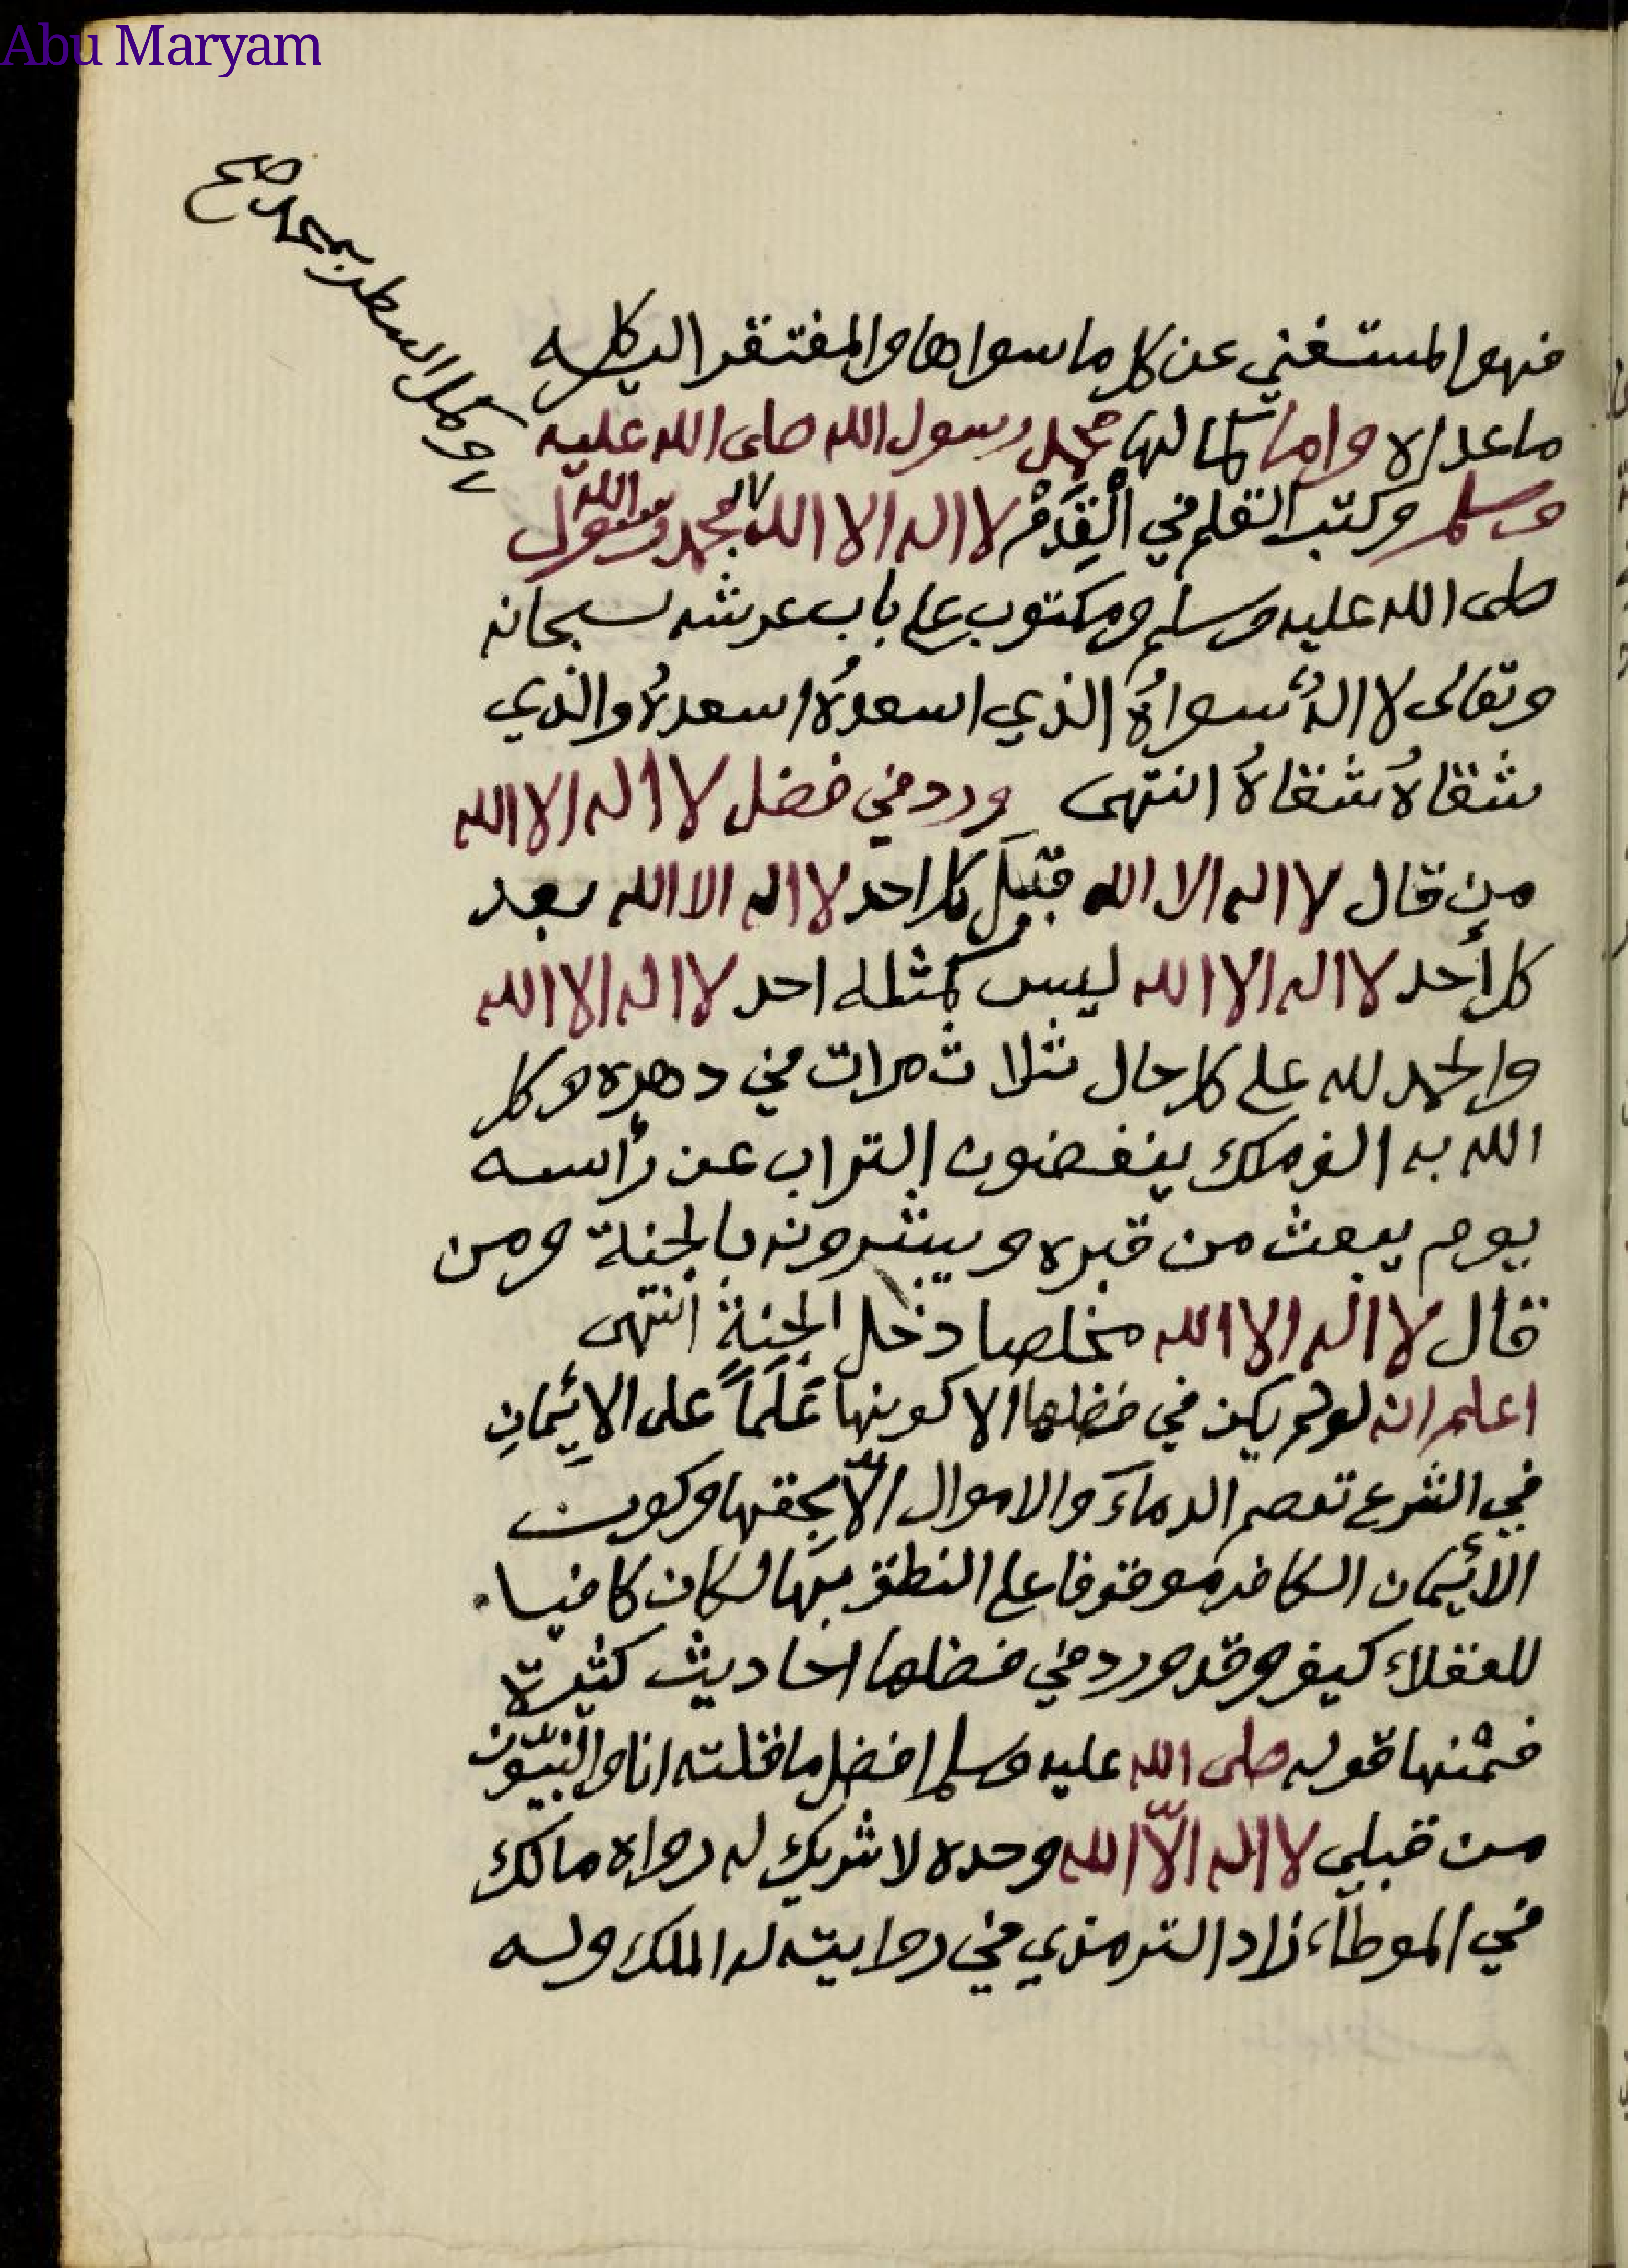 Abu Maryam
وكمل السطر بمحمد صح
فهو المستغني عن كل ما سواها والمفتقر اليه كلـه
ما عداه واما كمالها محمد رسول الله صلى الله عليه
وسلم وكتب القلم في الْقِدَمْ لا اله الا الله محمد رسول الله
صلى الله عليه وسلم ومكتوب على باب عرشه سبحانه
وتعالى لا الهُ سواهُ الذي اسعدهُ اسعدهُ والذي
شقاهُ شقاهُ انتهى ورد في فضل لا اله الا الله
من قال لا اله الا الله قبل كل احد لا اله الا الله بعد
كل أحد لا اله الا الله ليس كمثله احد لا اله الا الله
والحمد لله على كل حال ثلاث مرات في دهره وكل
الله به الف ملك ينفضون التراب عن رأسه
يوم يبعث من قبره ويبشرونه بالجنة ومن
قال لا اله الا الله مخلصا دخل الجنة انتهى
اعلم انه لو لم يكن في فضلها الا كونها عَلَماً على الايمانِ
في الشرع تعصم الدماء والاموال الاّ بحقها وكون
الايمان الكافر موقوفا على النطق بها لكان كافيا
للعقلاء كيف وقد ورد في فضلها احاديث كثيرة
فمْنها قوله صلى الله عليه وسلم افضل ما قلته انا والنبيّون
من قبلي لا اله الاّ الله وحده لا شريك له رواه مالك
في الموطاء زاد الترمذي في روايته له الملك ولـه